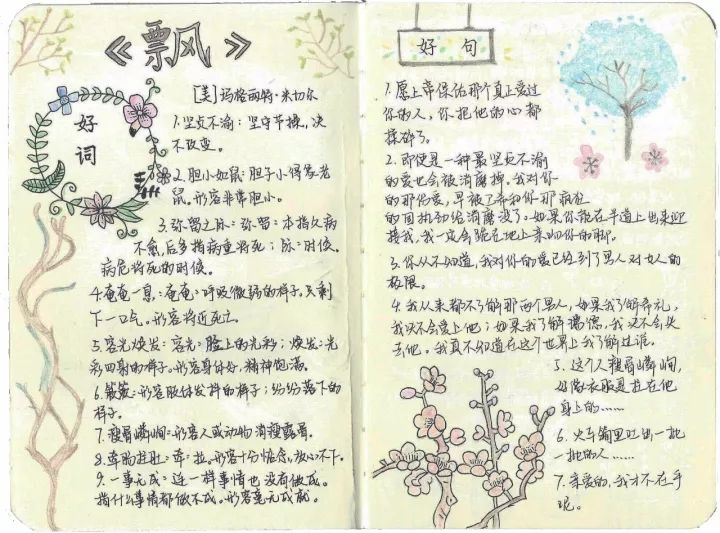 《飘》
[美]玛格丽特·米切尔
好词
1.坚贞不渝：坚守节操，决
不改变。
2.胆小如鼠：胆子小得象老
鼠。形容非常胆小。
3.弥留之际：弥留：本指久病
不愈，后多指病重将死；际：时候。
病危将死的时候。
4.奄奄一息：奄奄：呼吸微弱的样子。只剩
下一口气。形容将近死亡。
5.容光焕发：容光：脸上的光彩；焕发：光
彩四射的样子。形容身体好，精神饱满。
6.簌簌：形容肢体发抖的样子；纷纷落下的
样子。
7.瘦骨嶙峋：形容人或动物消瘦露骨。
8.牵肠挂肚：牵：拉。形容十分惦念，放心不下。
9.一事无成：连一样事情也没有做成。
指什么事情都做不成。形容毫无成就。
好句
1.愿上帝保佑那个真正爱过
你的人，你把他的心都
揉碎了。
2.即使是一种最坚贞不渝
的爱也会被消磨掉。我对你
的那份爱，早被了希和你那疯狂
的固执劲给消磨没了。如果你能在半道上出来迎
接我，我一定会跪在地上来吻你的脚。
3.你从不知道，我对你的爱已经到了男人对女人的
极限。
4.我从来都不了解那两个男人，如果我了解希礼，
我决不会爱上他；如果我了解瑞德，我决不会失
去他。我真不知道在这个世界上我了解过谁。
5.这个人瘦骨嶙峋，
好像衣服是挂在他
身上的……
6.火车箱里吐出一批
一批的人……
7.亲爱的，我才不在乎
呢。